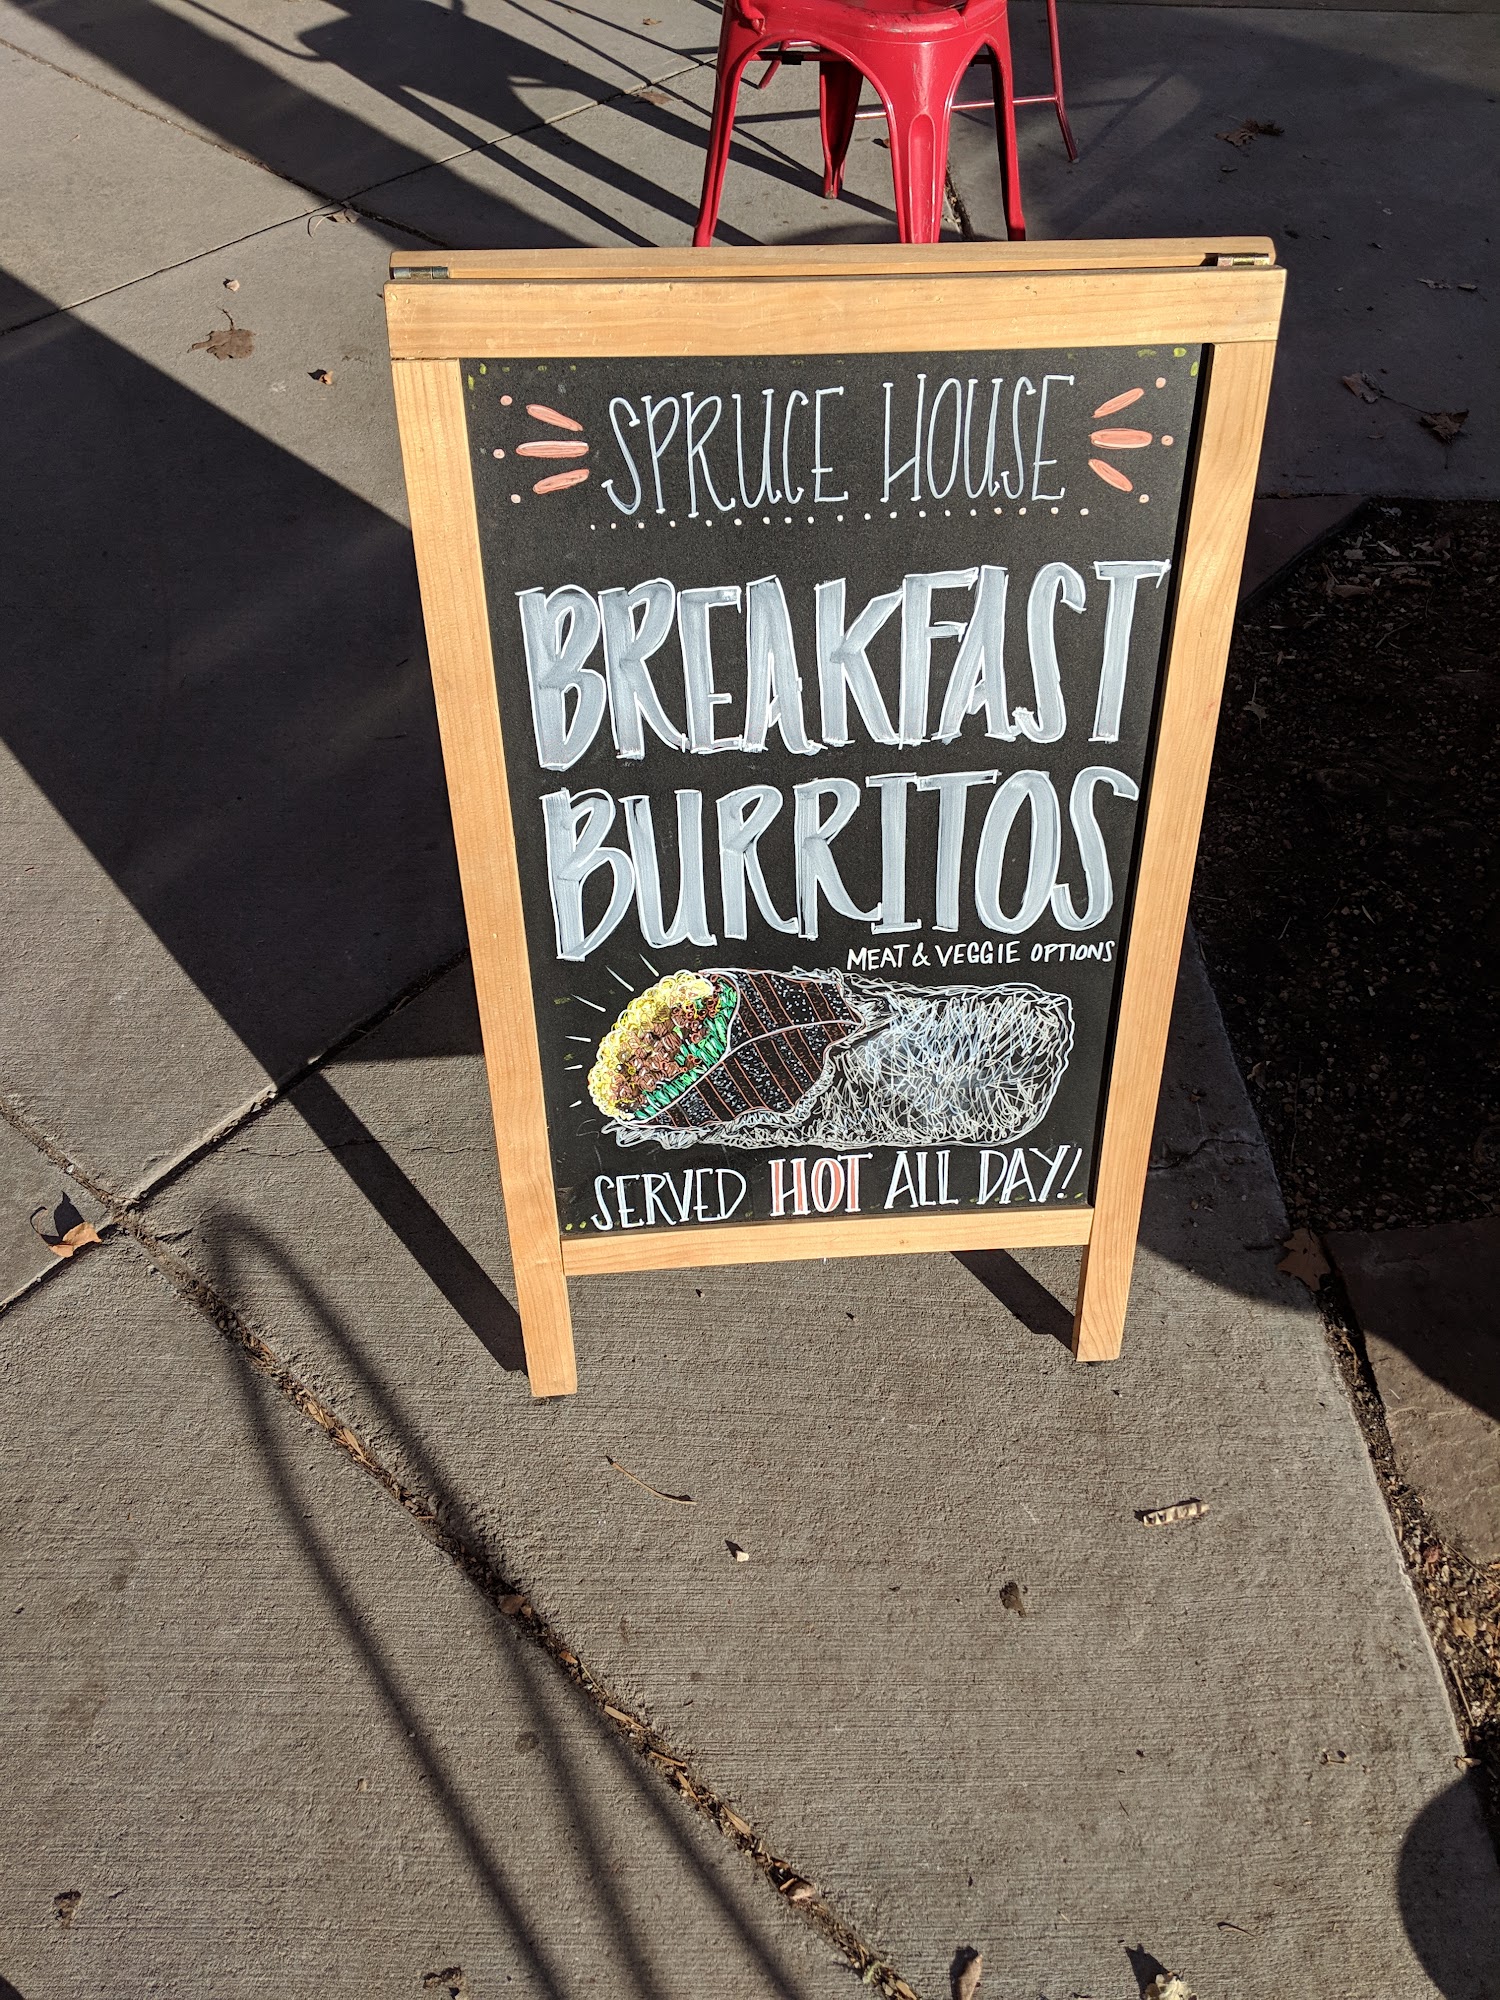 SPRUCE HOUSE
BREAKFAST
BURRITOS
MEAT & VEGGIE OPTIONS
SERVED HOT ALL DAY!